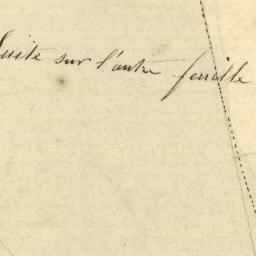 Suite sur l'autre feuille